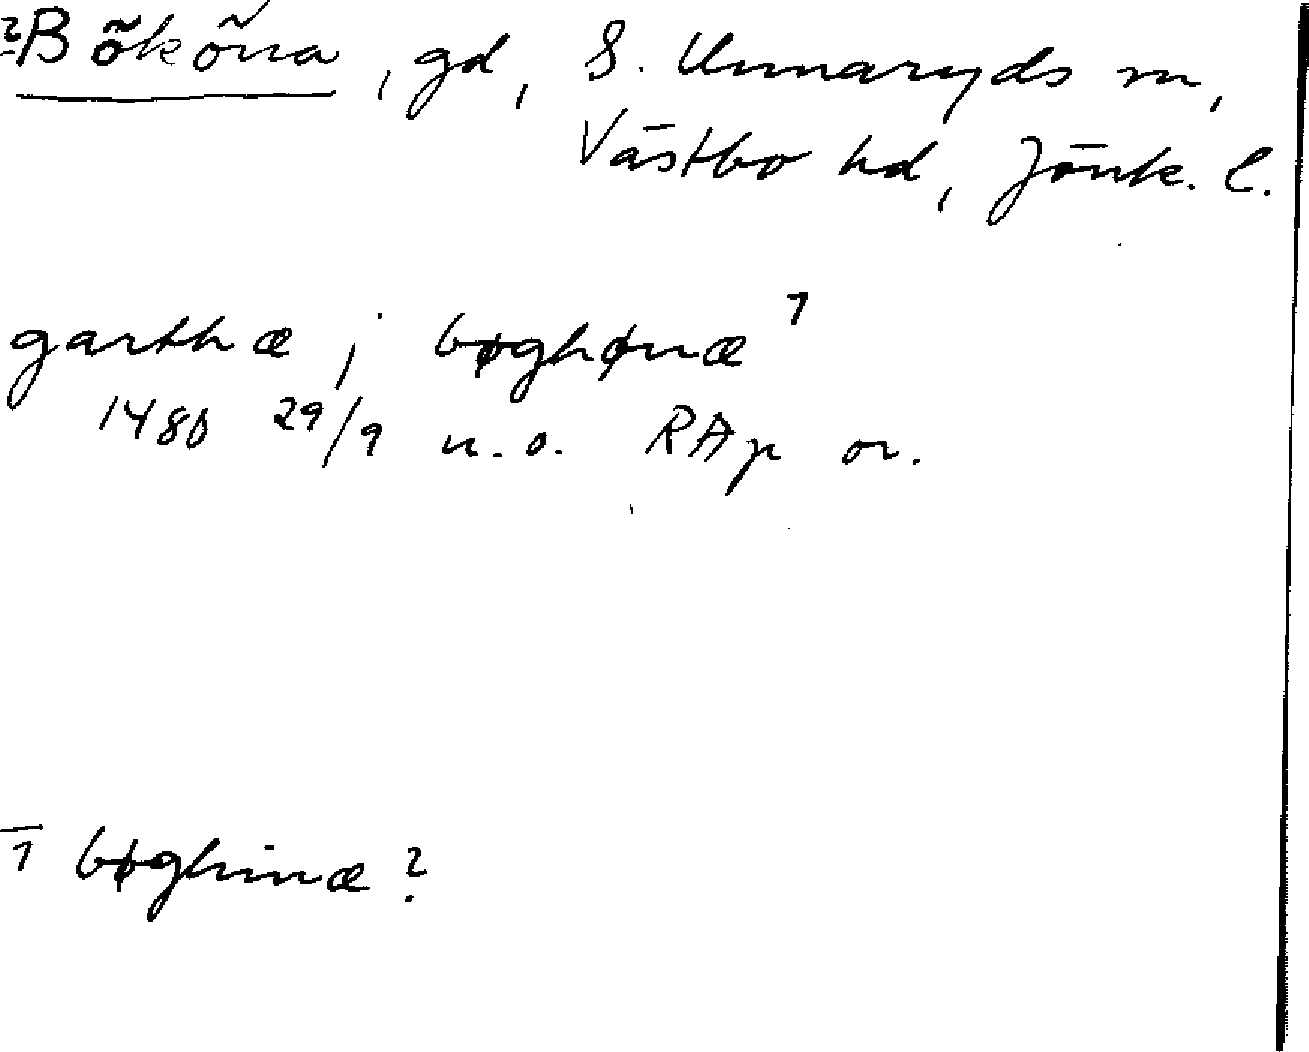 ? Bököna, gd, S. Unnaryds sn,
Västbo hd, Jönk. l.
garthæ j bøghønæ ¹
1480 29/9 u.o. RAp or.
1 bøghinæ?